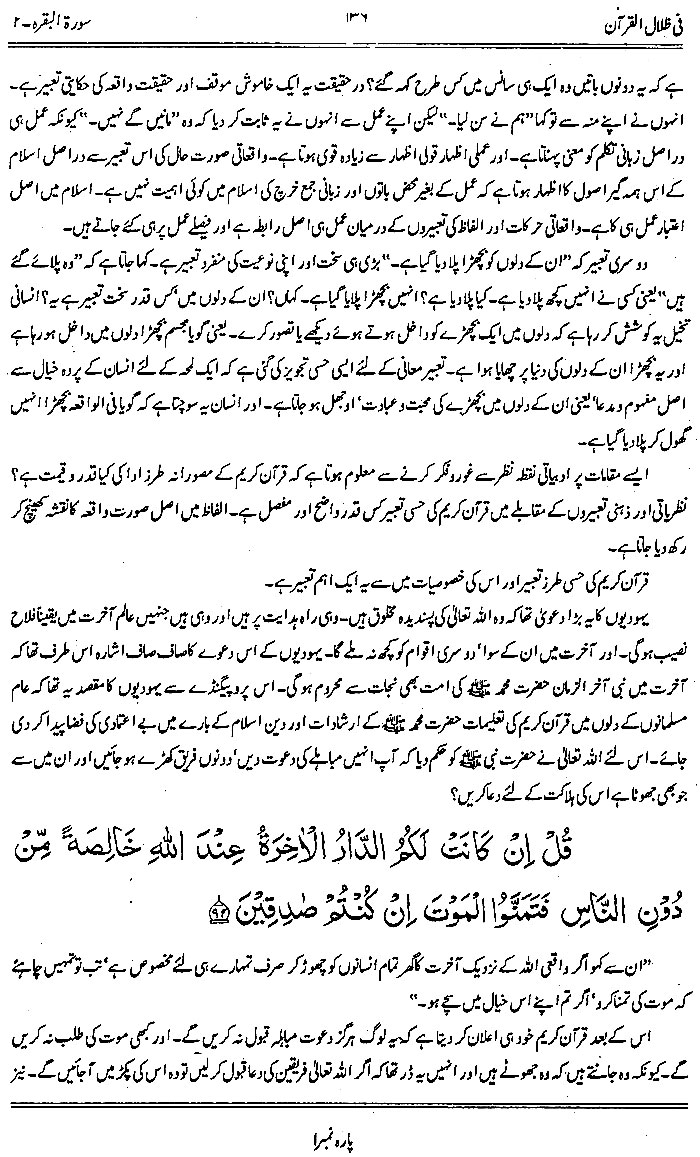 فی ظلال القرآن
۱۳۶
سورۃ البقرہ ۔ ۲
ہے کہ یہ دونوں باتیں وہ ایک ہی سانس میں کس طرح کہہ گئے؟ درحقیقت یہ ایک خاموش موقف اور حقیقت واقعہ کی حکایتی تعبیر ہے۔
انہوں نے اپنے منہ سے تو کہا "ہم نے سن لیا۔" لیکن اپنے عمل سے انہوں نے یہ ثابت کر دیا کہ وہ "مانیں گے نہیں۔" کیونکہ عمل ہی
دراصل زبانی تکلم کو معنی پہناتا ہے۔ اور عملی اظہار قولی اظہار سے زیادہ قوی ہوتا ہے۔ واقعاتی صورت حال کی اس تعبیر سے دراصل اسلام
کے اس ہمہ گیر اصول کا اظہار ہوتا ہے کہ عمل کے بغیر محض باتوں اور زبانی جمع خرچ کی اسلام میں کوئی اہمیت نہیں ہے۔ اسلام میں اصل
اعتبار عمل ہی کا ہے۔ واقعاتی حرکات اور الفاظ کی تعبیروں کے درمیان عمل ہی اصل رابطہ ہے اور فیصلے عمل پر ہی کئے جاتے ہیں۔
دوسری تعبیر کہ "ان کے دلوں کو بچھڑا پلا دیا گیا ہے۔" بڑی ہی سخت اور اپنی نوعیت کی منفرد تعبیر ہے۔ کہا جاتا ہے کہ "وہ پلائے گئے
ہیں" یعنی کسی نے انہیں کچھ پلا دیا ہے۔ کیا پلا دیا ہے؟ انہیں بچھڑا پلایا گیا ہے۔ کہاں؟ ان کے دلوں میں' کس قدر سخت تعبیر ہے یہ؟ انسانی
تخیل یہ کوشش کر رہا ہے کہ دلوں میں ایک بچھڑے کو داخل ہوتے ہوئے دیکھے یا تصور کرے۔ یعنی گویا مجسم بچھڑا دلوں میں داخل ہو رہا ہے
اور یہ بچھڑا ان کے دلوں کی دنیا پر چھایا ہوا ہے۔ تعبیر معانی کے لئے ایسی حسی تجویز کی گئی ہے کہ ایک لمحہ کے لئے انسان کے پردہ خیال سے
اصل مفہوم و مدعا' یعنی ان کے دلوں میں بچھڑے کی محبت و عبادت' اوجھل ہو جاتا ہے۔ اور انسان یہ سوچتا ہے کہ گویا فی الواقعہ بچھڑا انہیں
گھول کر پلا دیا گیا ہے۔
ایسے مقامات پر ادبیاتی نقطہ نظر سے غور و فکر کرنے سے معلوم ہوتا ہے کہ قرآن کریم کے مصورانہ طرز ادا کی کیا قدر و قیمت ہے؟
نظریاتی اور ذہنی تعبیروں کے مقابلے میں قرآن کریم کی حسی تعبیر کس قدر واضح اور مفصل ہے۔ الفاظ میں اصل صورت واقعہ کا نقشہ کھینچ کر
رکھ دیا جاتا ہے۔
قرآن کریم کی حسی طرز تعبیر اور اس کی خصوصیات میں سے یہ ایک اہم تعبیر ہے۔
یہودیوں کا یہ بڑا دعویٰ تھا کہ وہ اللہ تعالیٰ کی پسندیدہ مخلوق ہیں۔ وہی راہ ہدایت پر ہیں اور وہی ہیں جنہیں عالم آخرت میں یقیناً فلاح
نصیب ہوگی۔ اور آخرت میں ان کے سوا' دوسری اقوام کو کچھ نہ ملے گا۔ یہودیوں کے اس دعوے کا صاف صاف اشارہ اس طرف تھا کہ
آخرت میں نبی آخر الزمان حضرت محمد ﷺ کی امت بھی نجات سے محروم ہوگی۔ اس پروپیگنڈے سے یہودیوں کا مقصد یہ تھا کہ عام
مسلمانوں کے دلوں میں قرآن کریم کی تعلیمات حضرت محمد ﷺ کے ارشادات اور دین اسلام کے بارے میں بے اعتمادی کی فضا پیدا کر دی
جائے۔ اس لئے اللہ تعالیٰ نے حضرت نبی ﷺ کو حکم دیا کہ آپ انہیں مباہلے کی دعوت دیں' دونوں فریق کھڑے ہو جائیں اور ان میں سے
جو بھی جھوٹا ہے اس کی ہلاکت کے لئے دعا کریں؟
قُلْ اِنْ كَانَتْ لَكُمُ الدَّارُ الْاٰخِرَةُ عِنْدَ اللّٰهِ خَالِصَةً مِّنْ
دُوْنِ النَّاسِ فَتَمَنَّوُا الْمَوْتَ اِنْ كُنْتُمْ صٰدِقِيْنَ ۹۴
"ان سے کہو اگر واقعی اللہ کے نزدیک آخرت کا گھر تمام انسانوں کو چھوڑ کر صرف تمہارے ہی لئے مخصوص ہے' تب تو تمہیں چاہئے
کہ موت کی تمنا کرو' اگر تم اپنے اس خیال میں سچے ہو۔"
اس کے بعد قرآن کریم خود ہی اعلان کر دیتا ہے کہ یہ لوگ ہرگز دعوت مباہلہ قبول نہ کریں گے۔ اور کبھی موت کی طلب نہ کریں
گے۔ کیونکہ وہ جانتے ہیں کہ وہ جھوٹے ہیں اور انہیں یہ ڈر تھا کہ اگر اللہ تعالیٰ فریقین کی دعا قبول کر لیں تو وہ اس کی پکڑ میں آجائیں گے۔ نیز
پارہ نمبر۱